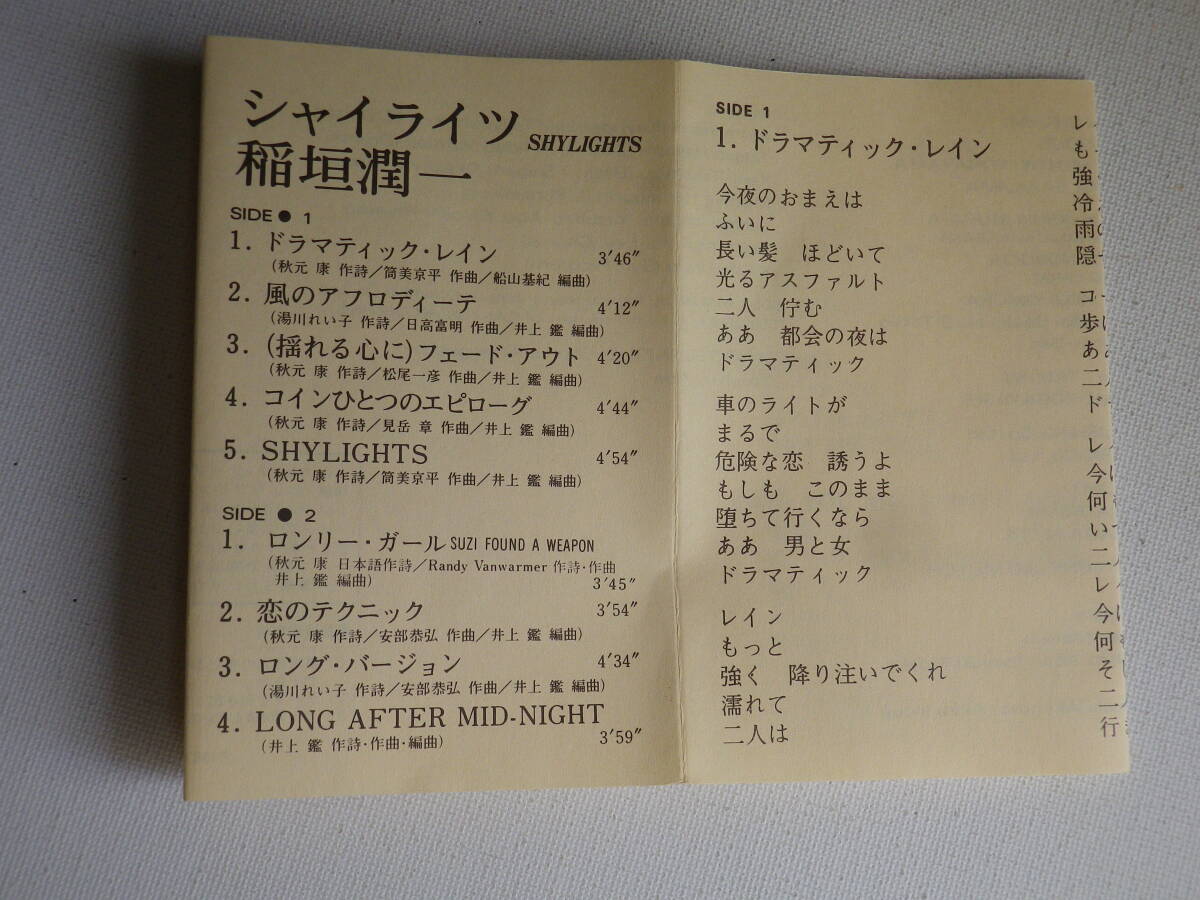 シャイライツ SHYLIGHTS
稲垣潤一
SIDE ● 1
1. ドラマティック・レイン 3′46″
(秋元 康 作詩／筒美京平 作曲／船山基紀 編曲)
2. 風のアフロディーテ 4′12″
(湯川れい子 作詩／日高富明 作曲／井上 鑑 編曲)
3. (揺れる心に)フェード・アウト 4′20″
(秋元 康 作詩／松尾一彦 作曲／井上 鑑 編曲)
4. コインひとつのエピローグ 4′44″
(秋元 康 作詩／見岳 章 作曲／井上 鑑 編曲)
5. SHYLIGHTS 4′54″
(秋元 康 作詩／筒美京平 作曲／井上 鑑 編曲)
SIDE ● 2
1. ロンリー・ガール SUZI FOUND A WEAPON
(秋元 康 日本語作詩／Randy Vanwarmer 作詩・作曲
井上 鑑 編曲) 3′45″
2. 恋のテクニック 3′54″
(秋元 康 作詩／安部恭弘 作曲／井上 鑑 編曲)
3. ロング・バージョン 4′34″
(湯川れい子 作詩／安部恭弘 作曲／井上 鑑 編曲)
4. LONG AFTER MID-NIGHT
(井上 鑑 作詩・作曲・編曲) 3′59″
SIDE 1
1. ドラマティック・レイン
今夜のおまえは
ふいに
長い髪 ほどいて
光るアスファルト
二人 佇む
ああ 都会の夜は
ドラマティック
車のライトが
まるで
危険な恋 誘うよ
もしも このまま
堕ちて行くなら
ああ 男と女
ドラマティック
レイン
もっと
強く 降り注いでくれ
濡れて
二人は
レ
も
強
冷
雨
隠
コ
歩
あ
二
ド
レ
今
何
い
二
レ
今
何
そ
二
行